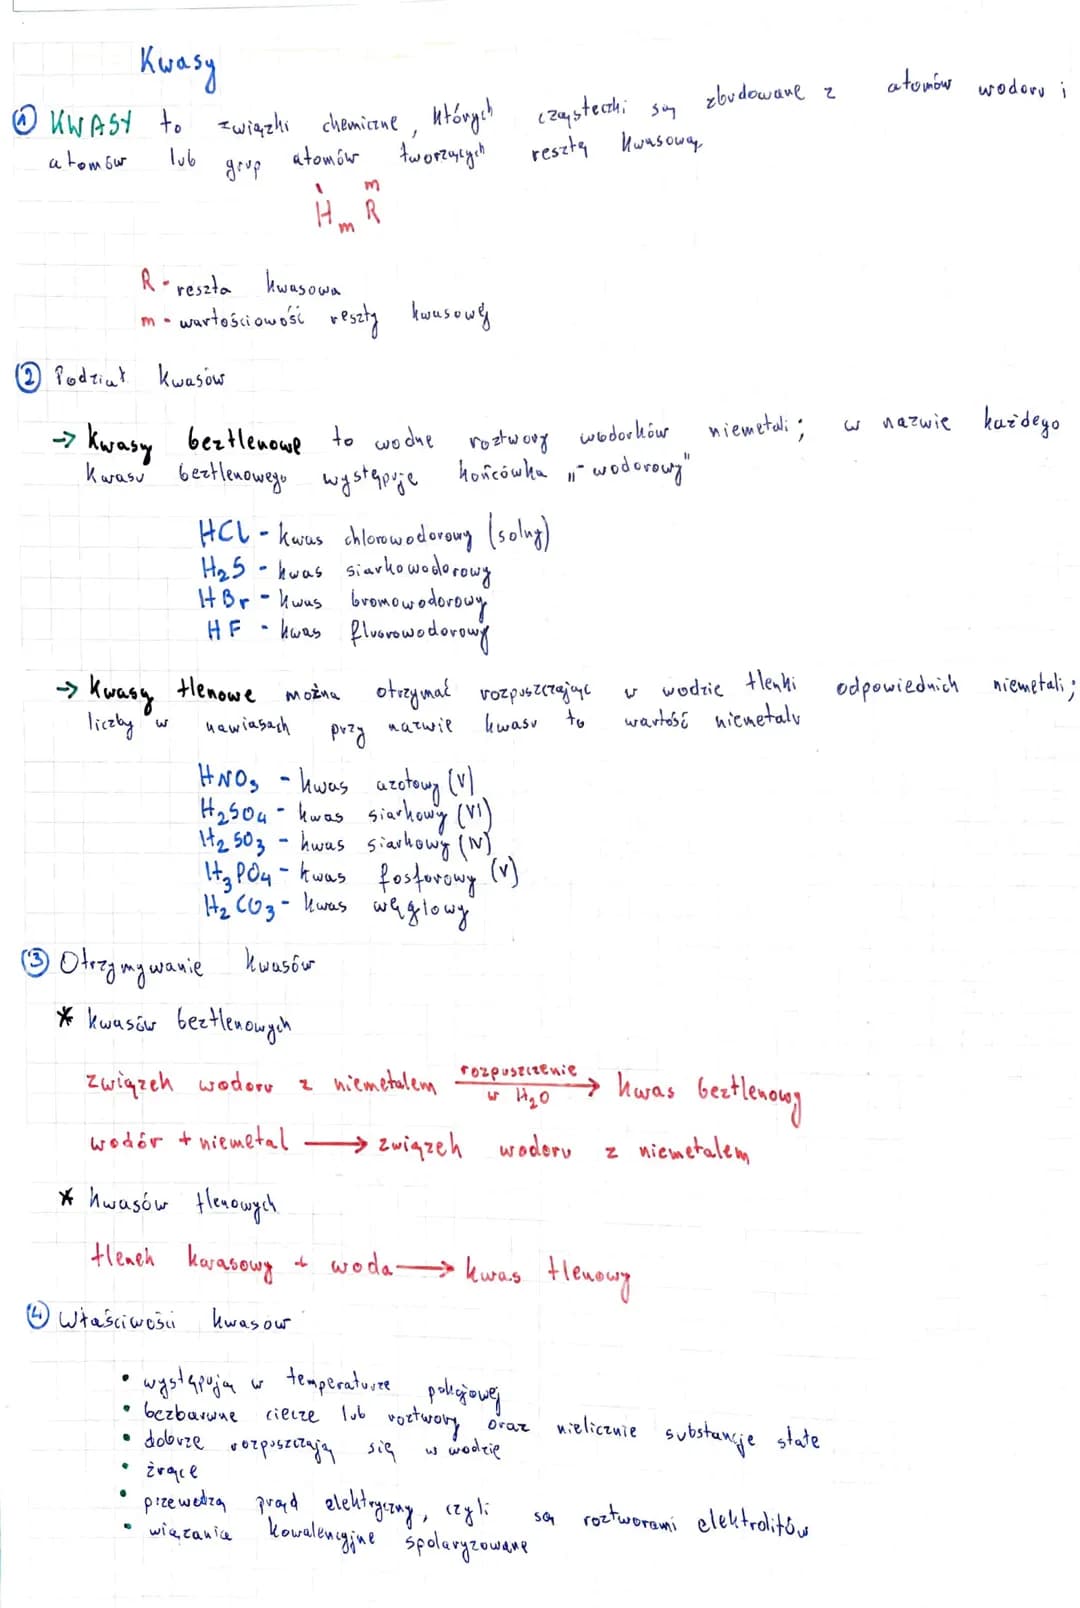 Kwasy
① KWASY to związki chemiczne, których cząsteczki są zbudowane z atomów wodoru i
atomów lub grup atomów tworzących resztę kwasową
I m
Hm R
R - reszta kwasowa
m - wartościowość reszty kwasowej
② Podział kwasów
→ Kwasy beztlenowe to wodne roztwory wodorków niemetali; w nazwie każdego
kwasu beztlenowego występuje końcówka „-wodorowy"
HCl - kwas chlorowodorowy (solny)
H₂S - kwas siarkowodorowy
HBr - kwas bromowodorowy
HF - kwas fluorowodorowy
→ Kwasy tlenowe można otrzymać rozpuszczając w wodzie tlenki odpowiednich niemetali;
liczby w nawiasach przy nazwie kwasu to wartość niemetalu
HNO₃ - kwas azotowy (V)
H₂SO₄ - kwas siarkowy (VI)
H₂SO₃ - kwas siarkowy (IV)
H₃PO₄ - kwas fosforowy (V)
H₂CO₃ - kwas węglowy
③ Otrzymywanie kwasów
* kwasów beztlenowych
związek wodoru z niemetalem rozpuszczenie w H₂O → kwas beztlenowy
wodór + niemetal → związek wodoru z niemetalem
* kwasów tlenowych
tlenek kwasowy + woda → kwas tlenowy
④ Właściwości kwasów
• występują w temperaturze pokojowej
• bezbarwne ciecze lub roztwory oraz nielicznie substancje stałe
• dobrze rozpuszczają się w wodzie
• żrące
• przewodzą prąd elektryczny, czyli są roztworami elektrolitów
• wiązania kowalencyjne spolaryzowane